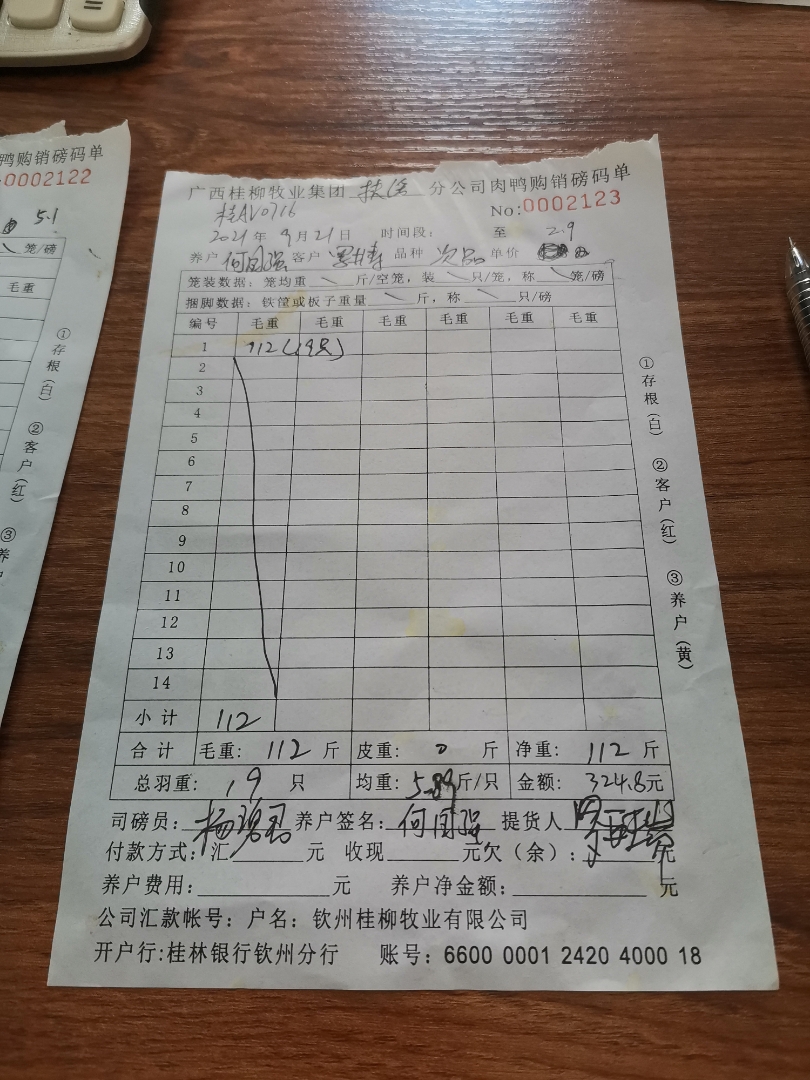 鸭购销磅码单
0002122
5.1
笼/磅
毛重
①存根(白)
②客户(红)
③养户
广西桂柳牧业集团 分公司肉鸭购销磅码单
桂AV0716
No:0002123
2021年9月21日 时间段: 至 2.9
养户 何国强 客户 品种 次品 单价
笼装数据:笼均重 斤/空笼,装 只/笼,称 笼/磅
捆脚数据:铁筐或板子重量 斤,称 只/磅
编号 毛重 毛重 毛重 毛重 毛重 毛重
1 112(19只)
2
3
4
5
6
7
8
9
10
11
12
13
14
小计 112
合计 毛重: 112 斤 皮重: 0 斤 净重: 112 斤
总羽重: 19 只 均重: 5.89斤/只 金额: 324.8元
司磅员: 养户签名: 何国强 提货人
付款方式:汇 元 收现 元欠(余): 元
养户费用: 元 养户净金额: 元
公司汇款帐号:户名:钦州桂柳牧业有限公司
开户行:桂林银行钦州分行 账号:6600 0001 2420 4000 18
①存根(白)
②客户(红)
③养户(黄)